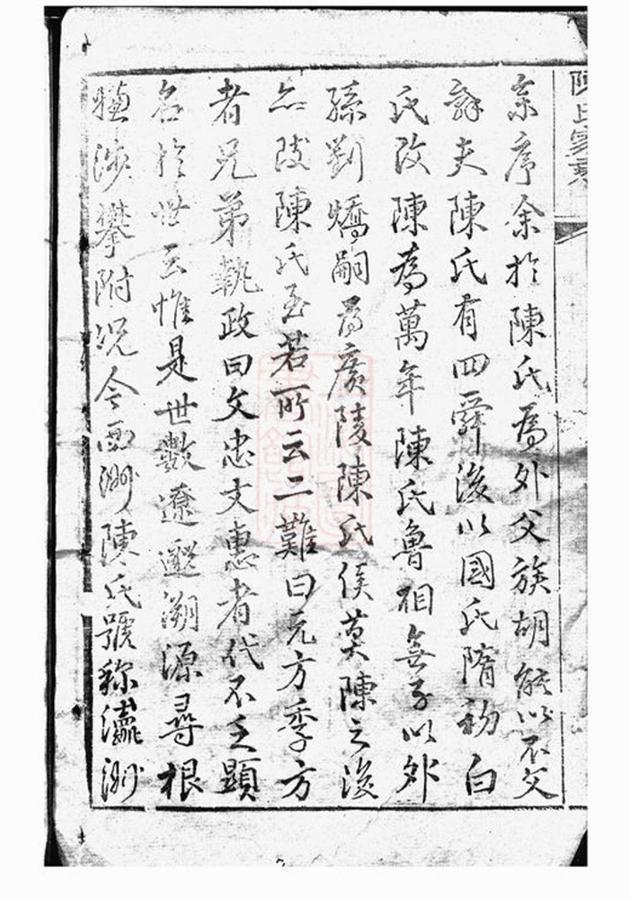 陳氏家乘
求序余於陳氏為外父族胡能以不文
辭夫陳氏有四舜後以國氏隋初白
氏改陳為萬年陳氏魯相無子以外
孫劉矯嗣為廣陵陳氏侯莫陳之後
亦改陳氏至若所云二難曰元方季方
者兄弟執政曰文忠文惠者代不乏顯
名於世云惟是世數遼邈溯源尋根
攀附况今西洲陳氏號稱瀛洲